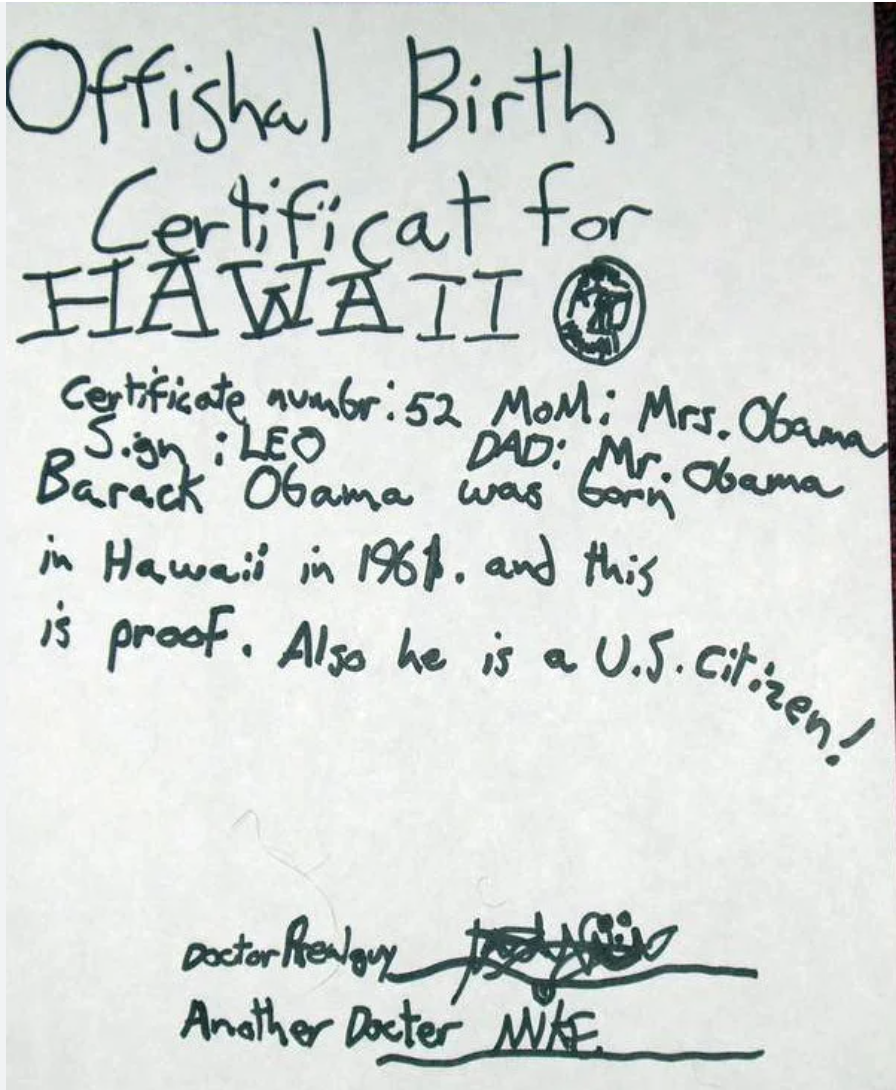 Offishal Birth
Certificat for
HAWAII
Certificate numbr: 52 MoM: Mrs. Obama
Sign: LEO DAD: Mr. Obama
Barack Obama was born
in Hawaii in 1961. and this
is proof. Also he is a U.S. citizen!
Doctor Realguy
Another Docter MIKE